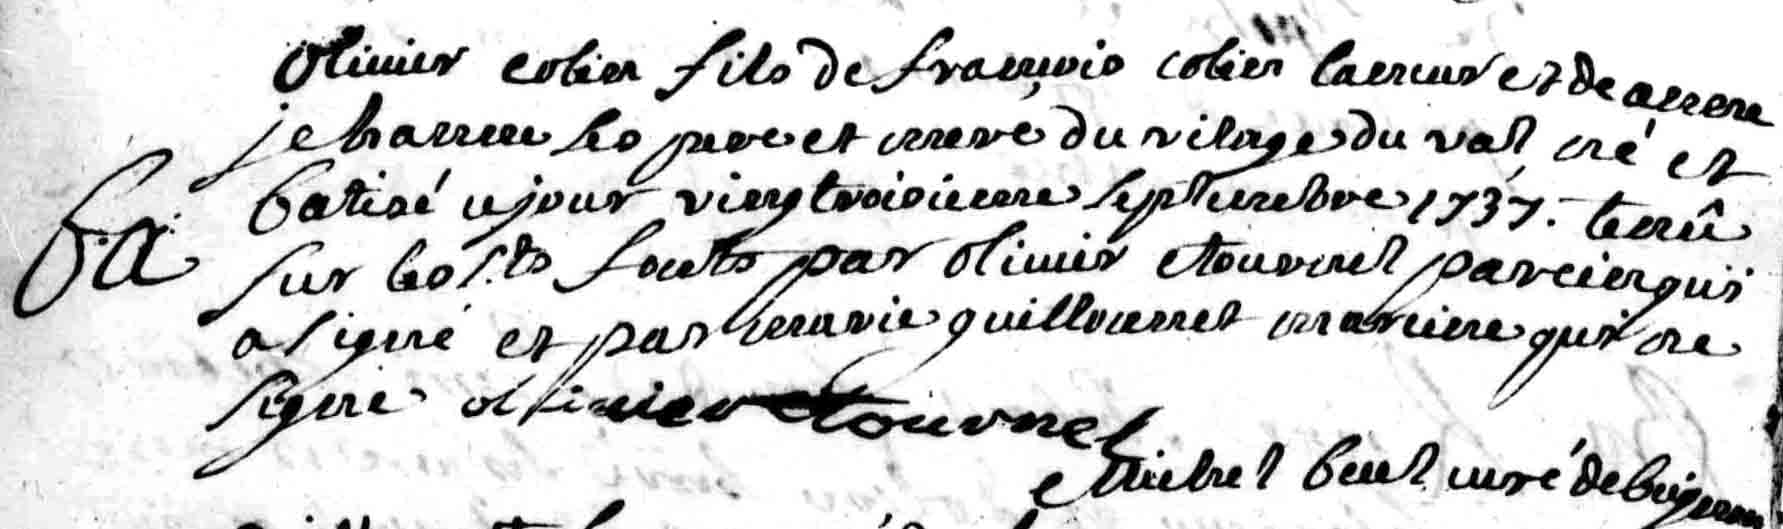 Olivier colien fils de françois colien et de anne
jehanne ses pere et mere du vilage du val né et
batisé ce jour vingtroisieme septembre 1737. tenû
sur les s.ts fonts par olivier tournel parein qui
a signé et par marie guillouet mareine qui ne
signe olivier tournel
Michel curé de